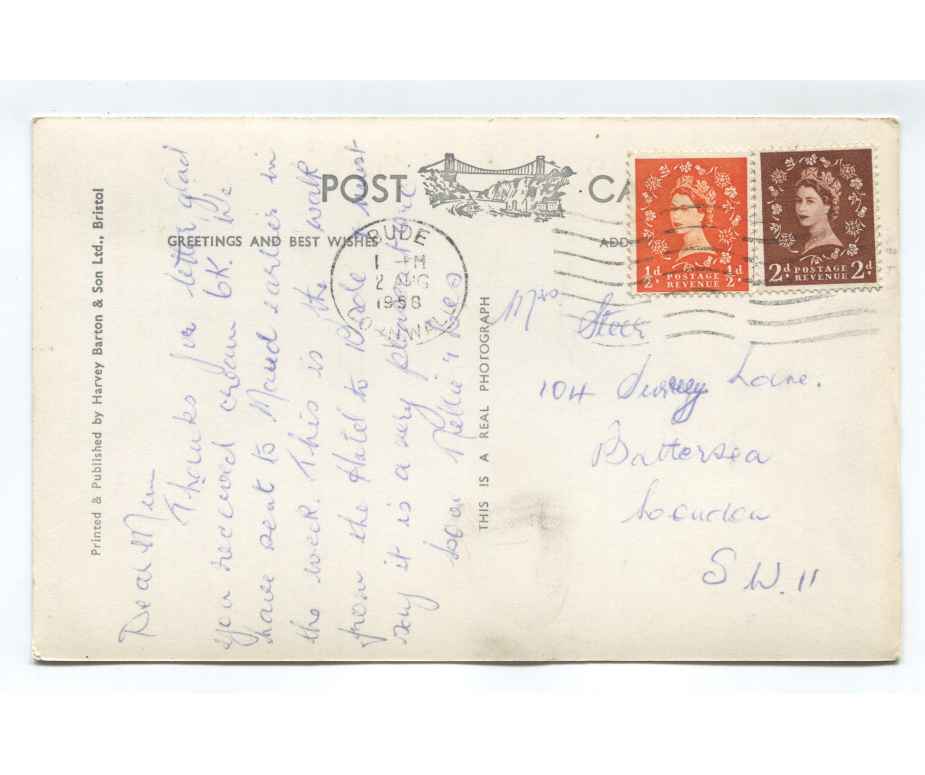 POST CA
GREETINGS AND BEST WISHES
ADD
Printed & Published by Harvey Barton & Son Ltd., Bristol
THIS IS A REAL PHOTOGRAPH
BUDE
1 PM
2 AUG
1958
CORNWALL
½d POSTAGE REVENUE ½d.
2d POSTAGE REVENUE 2d.
Dear Mim
Thanks for letter glad
you received cream OK. We
have sent to Maud earlier in
the week. This is the walk
from the flatd to Bude I must
say it is a very pleasant one
Love Nellie &
Mrs Steer
104 Surrey Lane.
Battersea
London
S W. 11